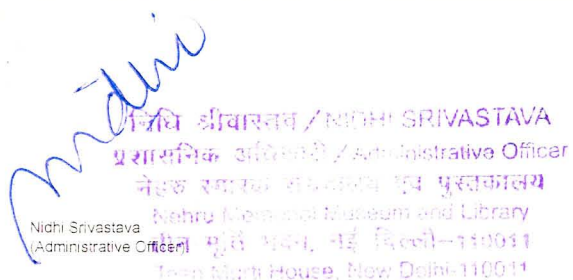 Nidhi
निधि श्रीवास्तव / NIDHI SRIVASTAVA
प्रशासनिक अधिकारी / Administrative Officer
नेहरु स्मारक संग्रहालय एवं पुस्तकालय
Nehru Memorial Museum and Library
तीन मूर्ति भवन, नई दिल्ली-110011
Teen Murti House, New Delhi-110011
Nidhi Srivastava
(Administrative Officer)